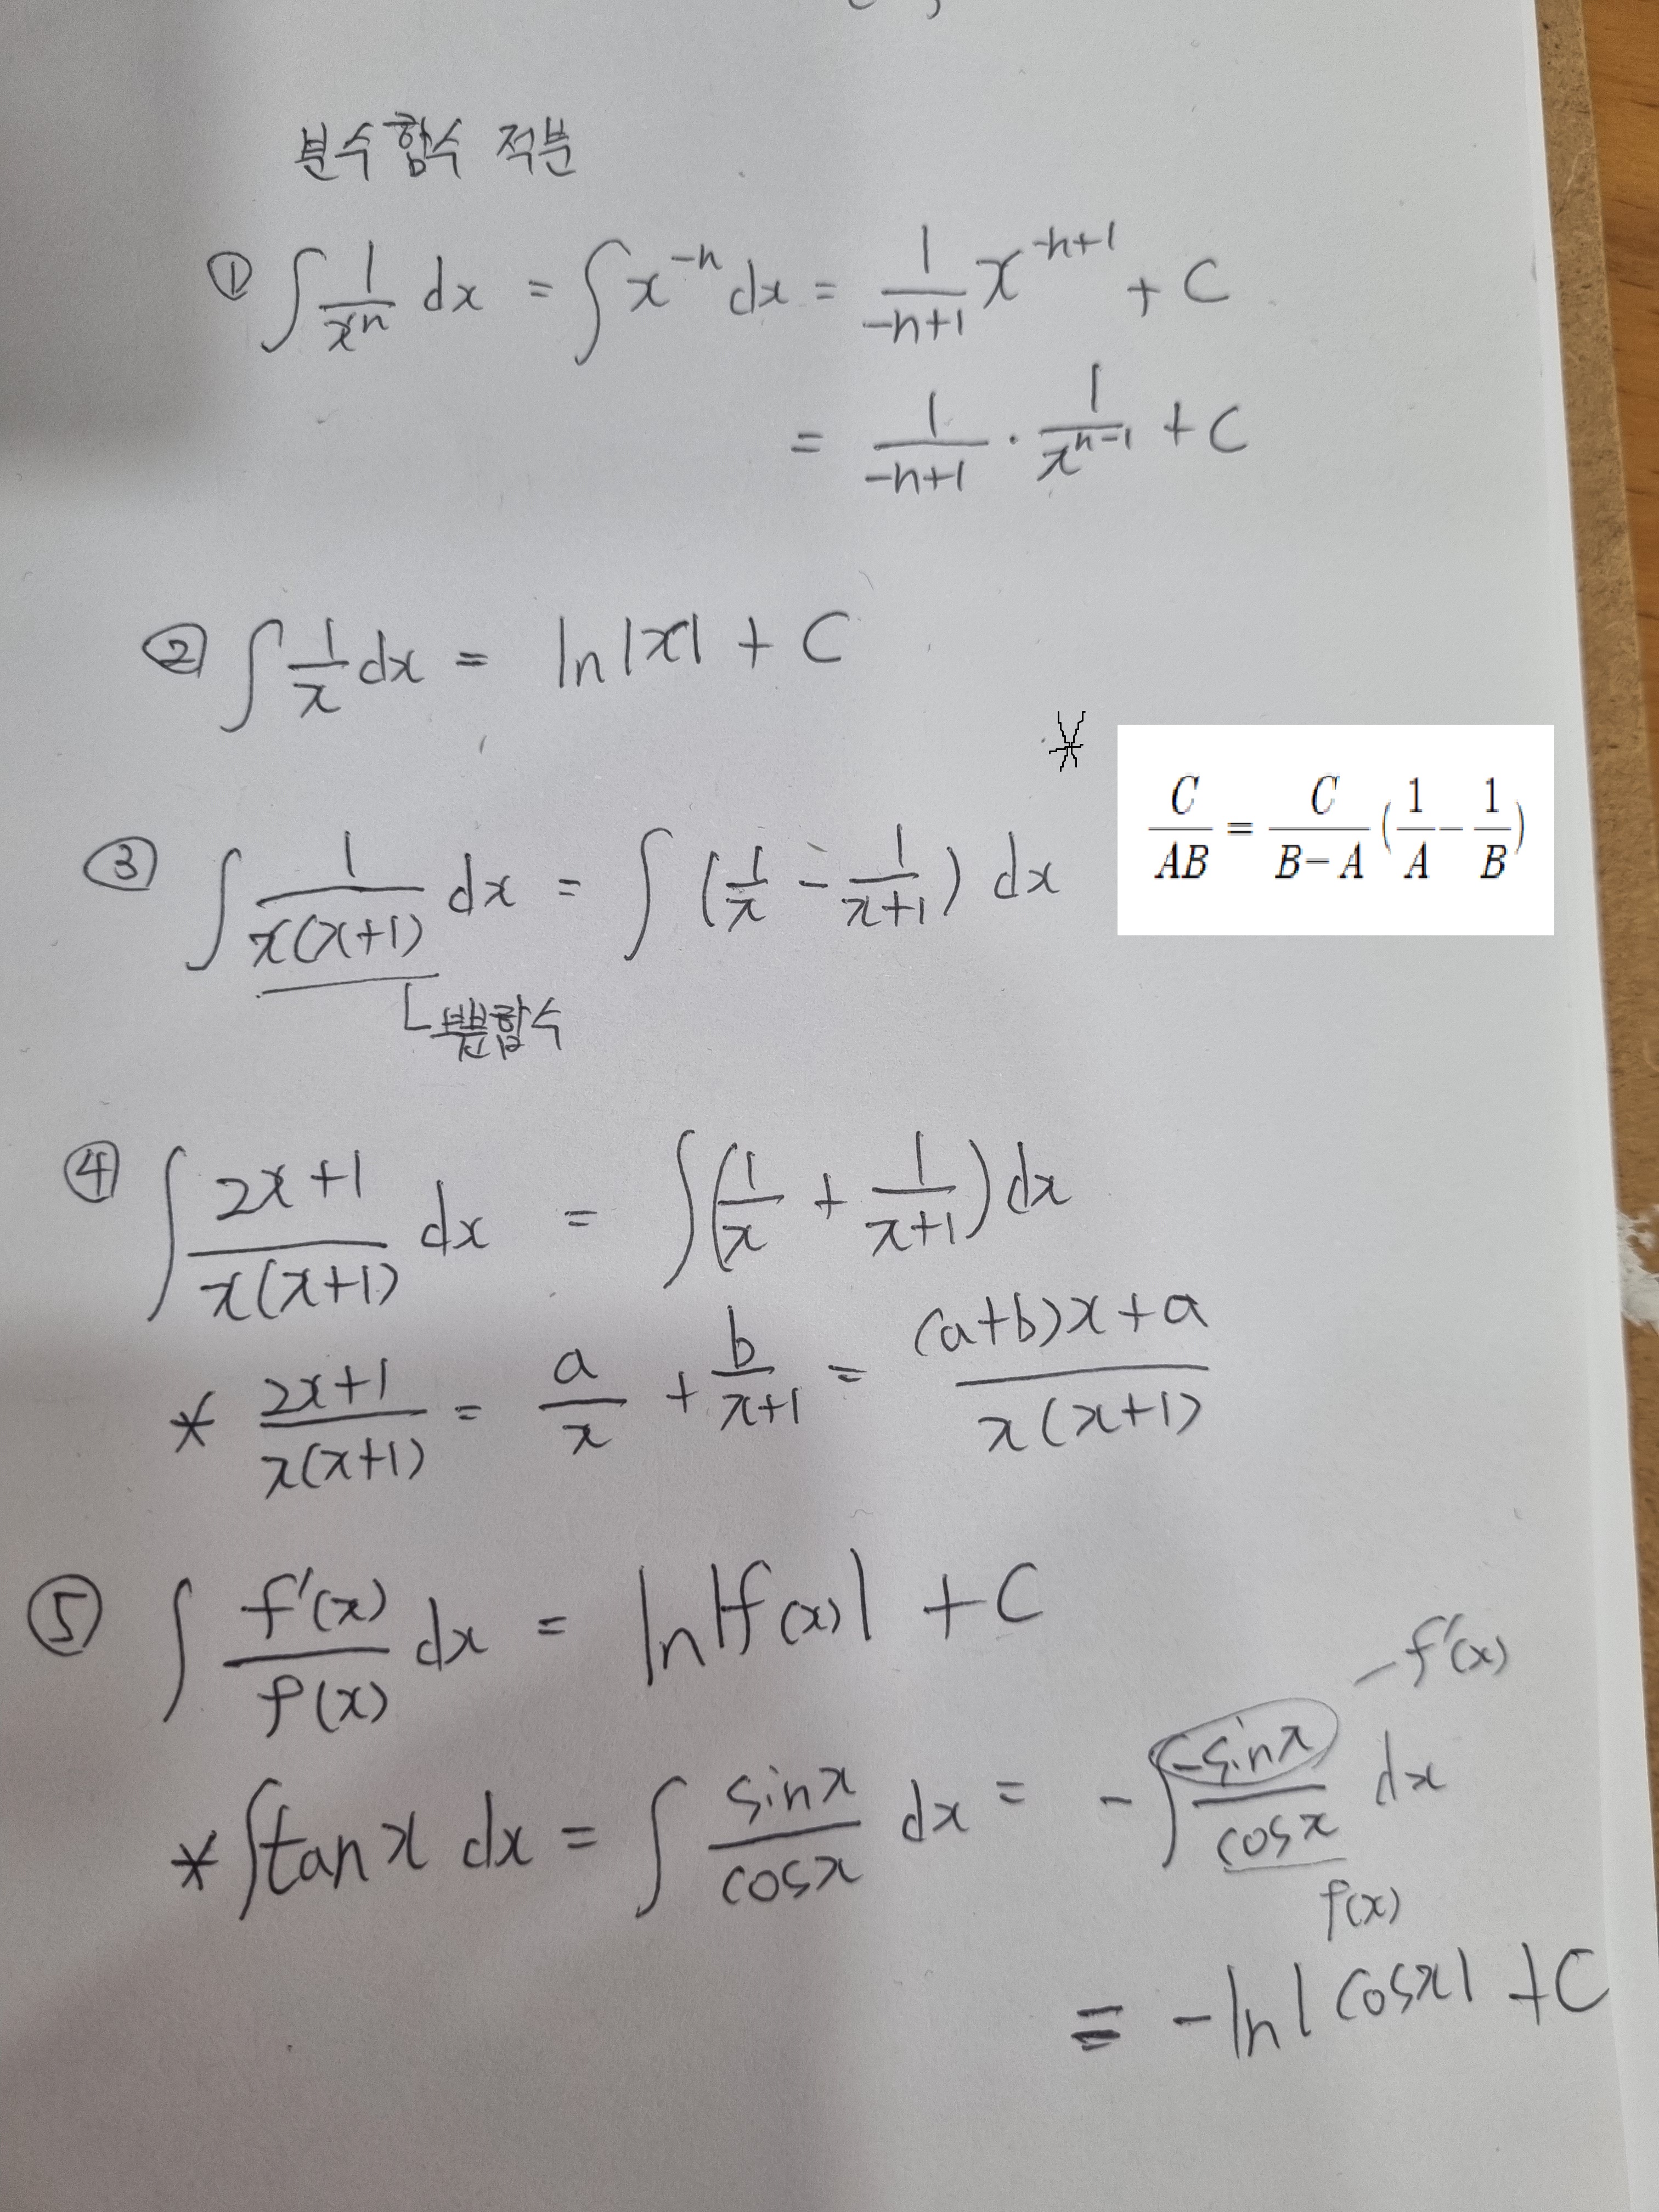 분수함수 적분
① ∫ 1/xⁿ dx = ∫ x⁻ⁿ dx = 1/(-n+1) x⁻ⁿ⁺¹ + C
= 1/(-n+1) · 1/xⁿ⁻¹ + C
② ∫ 1/x dx = ln|x| + C
* C/AB = C/(B-A) (1/A - 1/B)
③ ∫ 1/(x(x+1)) dx = ∫ (1/x - 1/(x+1)) dx
④ ∫ (2x+1)/(x(x+1)) dx = ∫ (1/x + 1/(x+1)) dx
* (2x+1)/(x(x+1)) = a/x + b/(x+1) = ((a+b)x+a)/(x(x+1))
⑤ ∫ f'(x)/f(x) dx = ln|f(x)| + C
-f'(x)
* ∫ tanx dx = ∫ sinx/cosx dx = - ∫ -sinx/cosx dx
f(x)
= -ln|cosx| + C